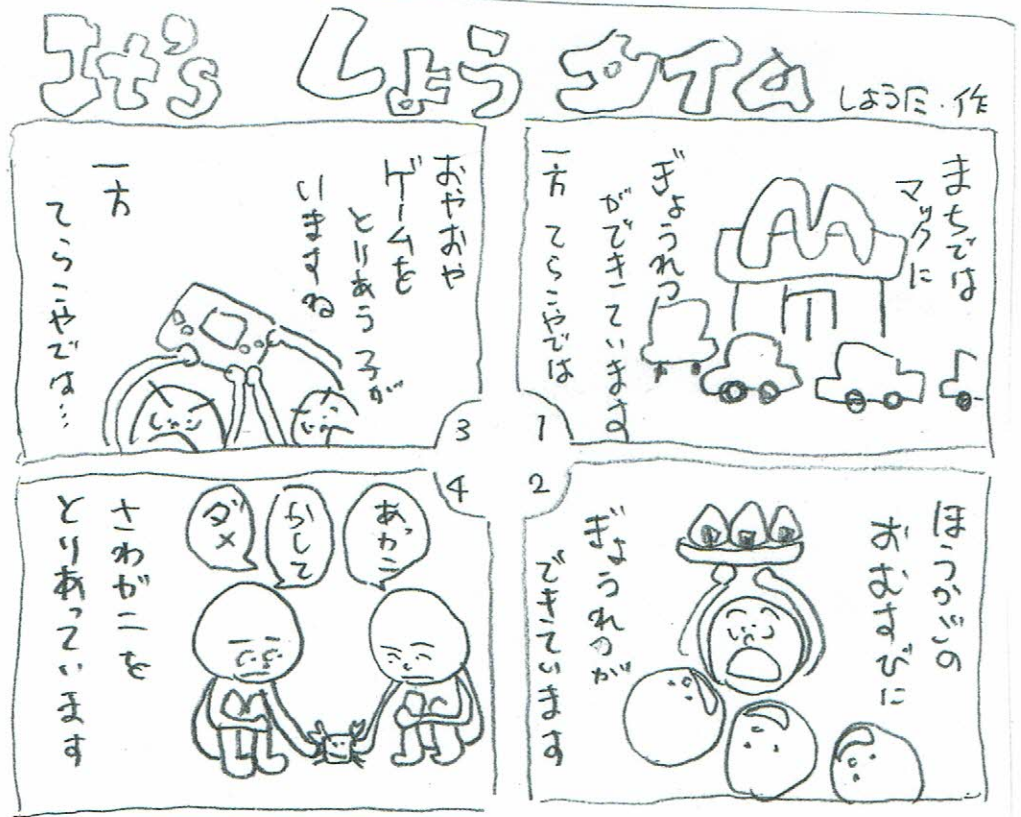 It's しょうタイム
しょうた・作
1
まちでは
マックに
ぎょうれつ
ができています
一方 てらこやでは
2
ほうかごの
おむすびに
ぎょうれつが
できています
3
おやおや
ゲームを
とりあう子が
いますね
一方
てらこやでは…
4
あっカニ
かして
ダメ
さわガニを
とりあっています